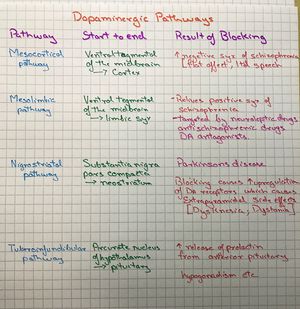 Dopaminergic Pathways
Pathway Start to end Result of Blocking
Mesocortical pathway
Ventral tegmental
of the midbrain
→ Cortex
↑ negative sys of schizophrenia
[flat effect, ltd speech
Mesolimbic
pathway
Ventral tegmental
of the midbrain
→ limbic sys
→Relives positive sys of
schizophrenia
→targeted by neuroleptic drugs
antischizophrenic drugs
DA antagonists.
Nigrostriatal
pathway
Substantia nigra
pars compacta
→ neostriatum
Parkinsons disease
Blocking causes ↑upregulation
of DA receptors which causes
Extrapyramidal side effects
[Dyskinesia, Dystonia]
Tuberoinfundibular
pathway
Arcuate nucleus
of hypothalamus
→ pituitary
↑ release of prolactin
from anterior pituitary
hypogonadism etc